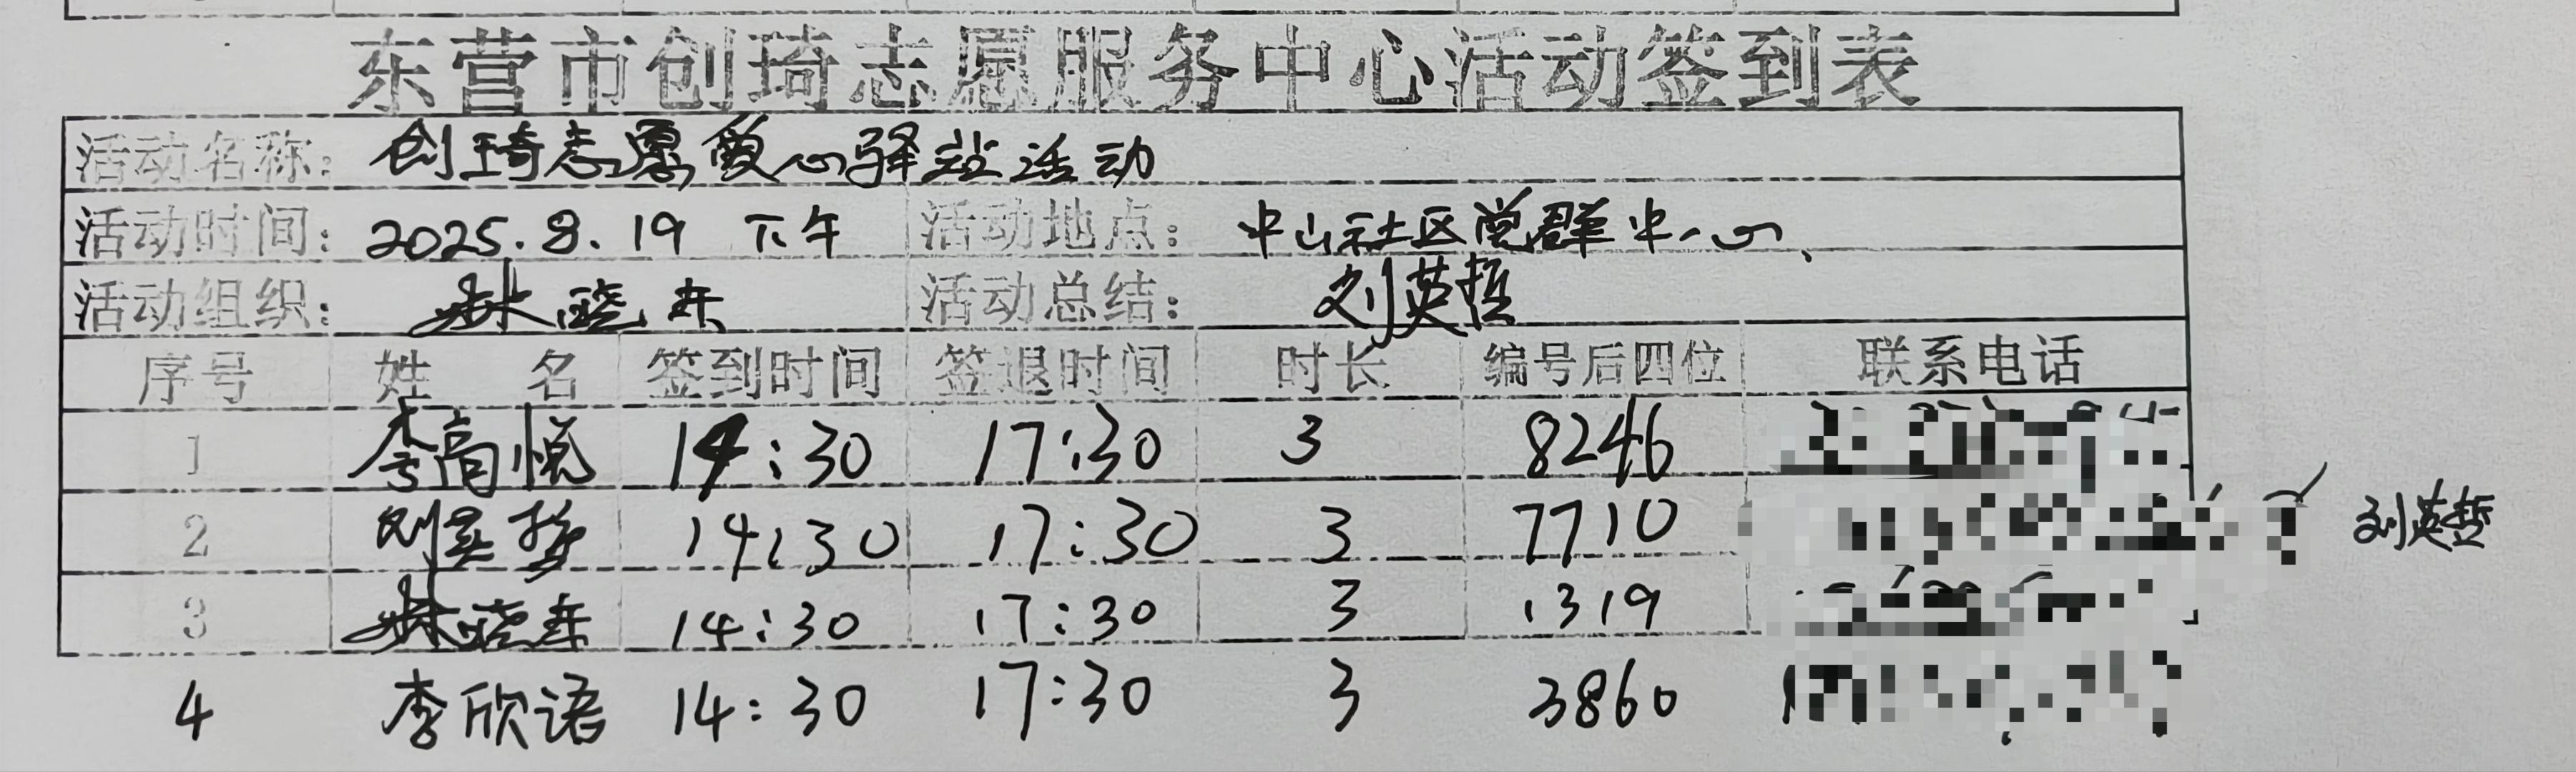 东营市创琦志愿服务中心活动签到表
活动名称: 创琦志愿爱心驿站活动
活动时间: 2025.8.19 下午 活动地点: 中山社区党群中心
活动组织: 林晓东 活动总结: 刘英哲
序号 姓名 签到时间 签退时间 时长 编号后四位 联系电话
1 李高悦 14:30 17:30 3 8246
2 刘英哲 14:30 17:30 3 7710 刘英哲
3 林晓东 14:30 17:30 3 1319
4 李欣语 14:30 17:30 3 3860